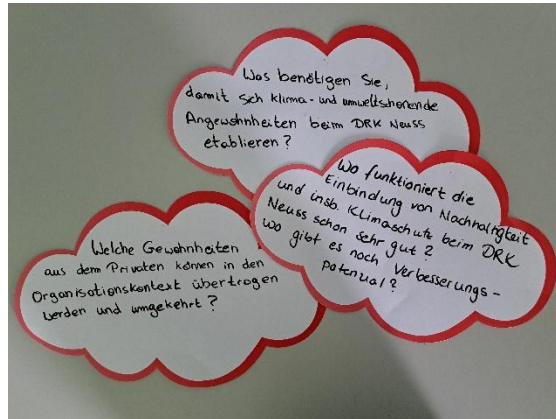 Was benötigen Sie,
damit sich klima- und umweltschonende
Angewohnheiten beim DRK Neuss
etablieren?
Wo funktioniert die
Einbindung von Nachhaltigkeit
und insb. Klimaschutz beim DRK
Neuss schon sehr gut?
Wo gibt es noch Verbesserungs-
potenzial?
Welche Gewohnheiten
aus dem Privaten können in den
Organisationskontext übertragen
werden und umgekehrt?